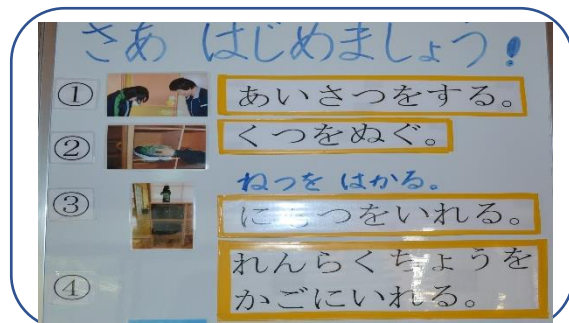 さあ はじめましょう!
① あいさつをする。
② くつをぬぐ。
ねつを はかる。
③ にもつをいれる。
④ れんらくちょうを
かごにいれる。